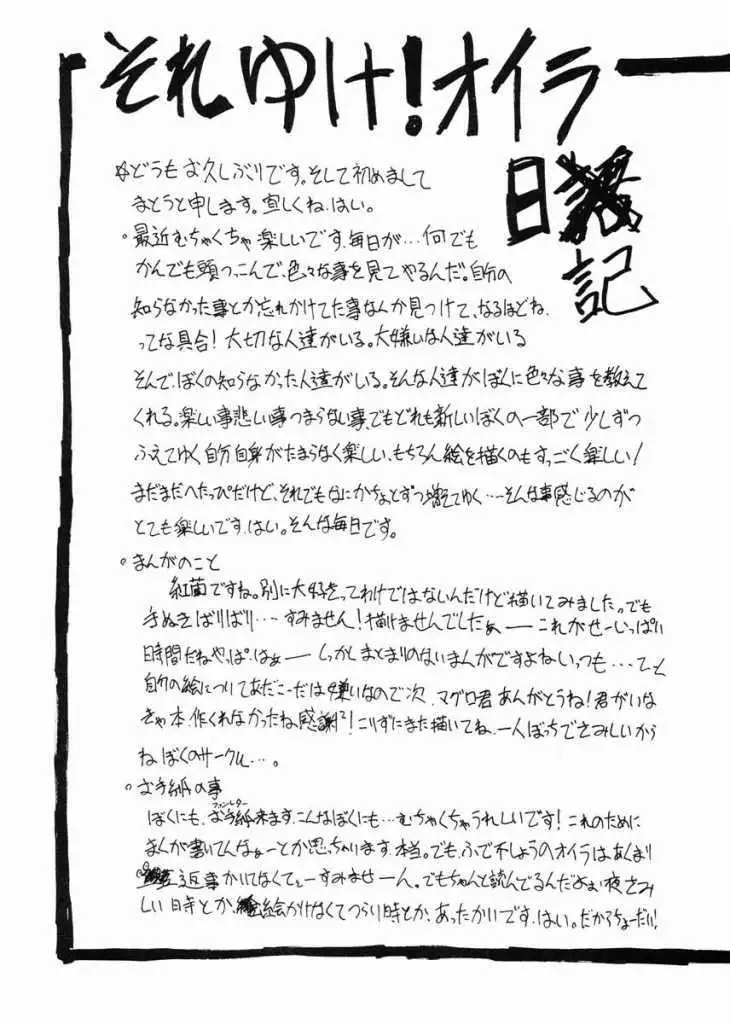 それゆけ!オイラ
日
記
☆どうもお久しぶりです。そして初めまして
まとうと申します。宜しくね。はい。
・最近むちゃくちゃ楽しいです、毎日が…何でも
かんでも頭つっこんで、色々な事を見てやるんだ。自分の
知らなかった事とか忘れかけてた事なんか見つけて、なるほどね、
ってな具合!大切な人達がいる。大嫌いな人達がいる
そんで、ぼくの知らなかった人達がいる。そんな人達がぼくに色々な事を教えて
くれる。楽しい事悲しい事つまらない事、でもどれも新しいぼくの一部で少しずつ
ふえてゆく自分自身がたまらなく楽しい、もちろん絵を描くのもすっごく楽しい!
まだまだへたっぴだけど、それでもなにかちょとずつ増えてゆく…そんな事感じるのが
とても楽しいです、はい。そんな毎日です。
・まんがのこと
紅茜ですね。別に大好きってわけではないんだけど描いてみました。でも
手ぬきばりばり…すみません!描けませんでしたぁーこれがせーいっぱい
時間だねやっぱ、はぁーしっかしまとまりのないまんがですよねいっつも…てっと
自分の絵についてあだこーだは嫌いなので次、マグロ君あんがとうね!君がいな
きゃ本、作くれなかったね感謝!こりずにまた描いてね、一人ぼっちでさみしいから
ねぼくのサークル…。
・お手紙の事
ぼくにも、お手紙来ます、こんなぼくにも…むちゃくちゃうれしいです!これのために
ファンレター
まんが書いてんなぁーとか思っちゃいます、本当。でも、ふで不しょうのオイラはあんまり
返事かいてなくてぇーすみませーん。でもちゃんと読んでるんだよぉ夜さみ
しい日寺とか、絵かけなくてつらい時とか、あったかいです、はい。だからちょーだい!